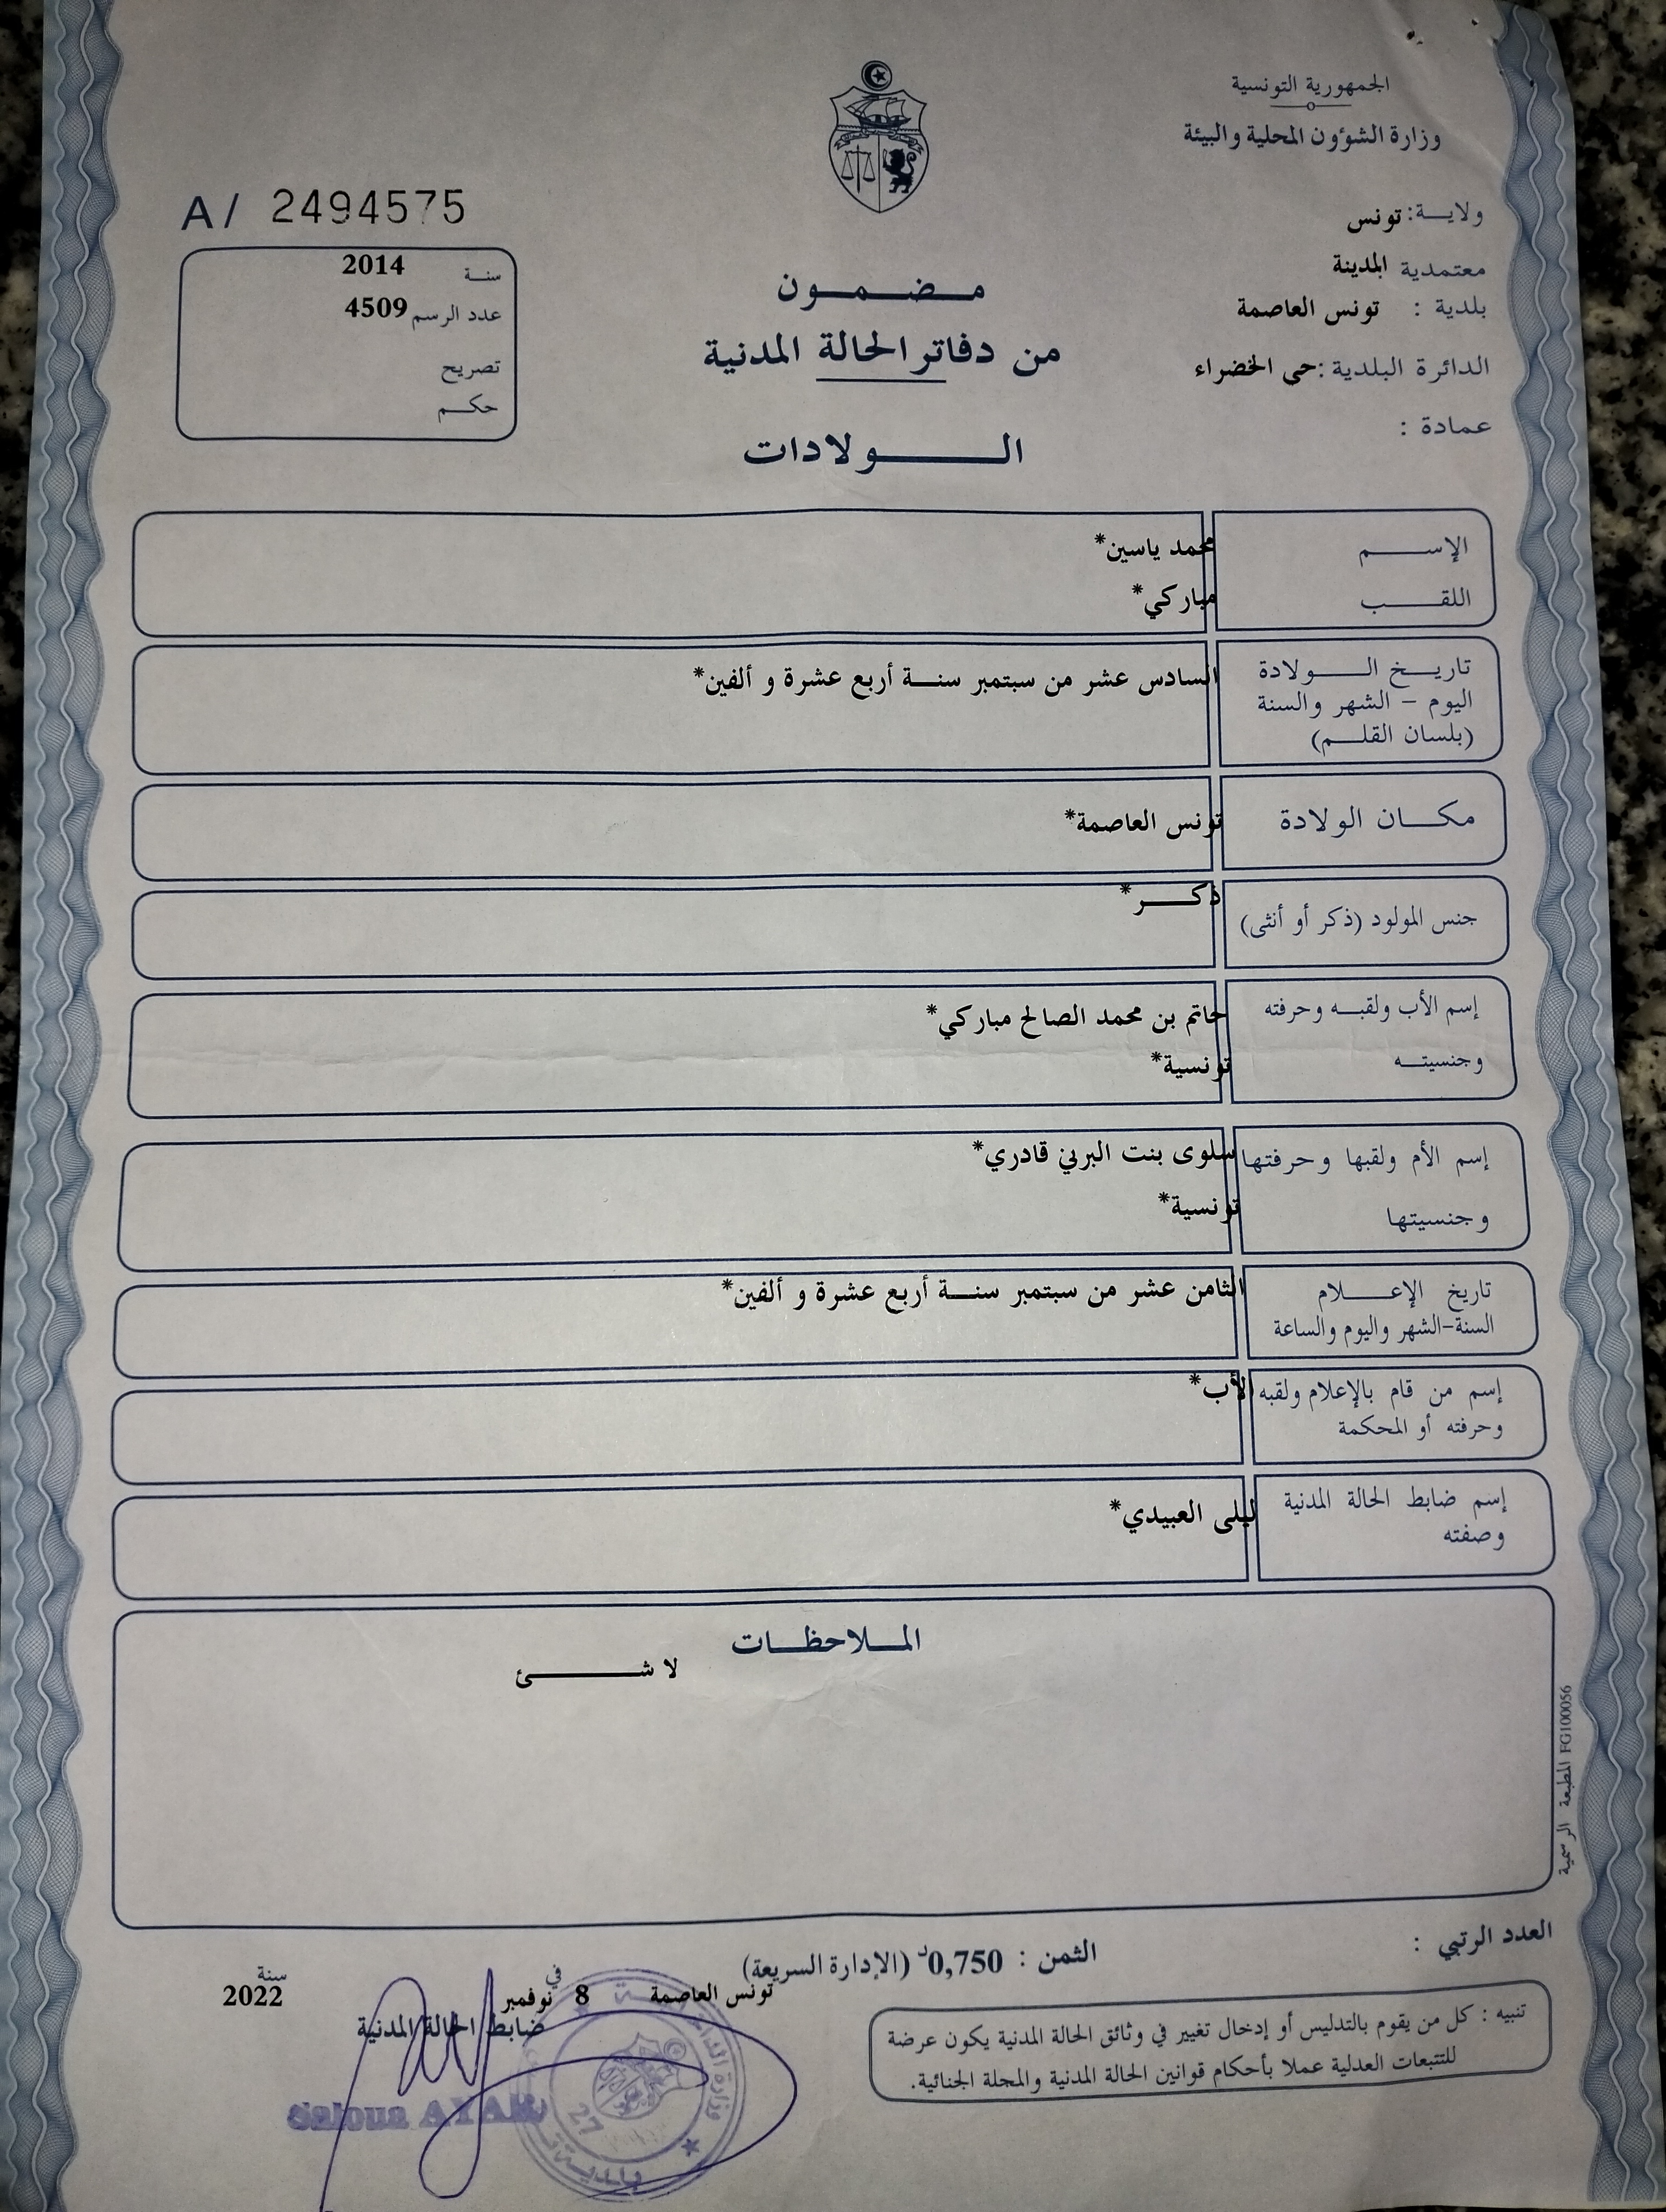 الجمهورية التونسية
وزارة الشؤون المحلية والبيئة
ولايـــة: تونس
معتمدية المدينة
بلدية : تونس العاصمة
الدائرة البلدية :حي الخضراء
عمادة :
A/ 2494575
سنـة 2014
عدد الرسم 4509
تصريح
حكـــم
مــضــمــون
من دفاتر الحالة المدنية
الــــولادات
الإســـــم محمد ياسين*
اللقـــــب مباركي*
تاريــخ الـــــولادة السادس عشر من سبتمبر سنــة أربع عشرة و ألفين*
اليوم - الشهر والسنة
(بلسان القلــم)
مكـــان الولادة تونس العاصمة*
جنس المولود (ذكر أو أنثى) ذكـــر*
إسم الأب ولقبــه وحرفته حاتم بن محمد الصالح مباركي*
وجنسيتــه تونسية*
إسم الأم ولقبها وحرفتها سلوى بنت البرني قادري*
وجنسيتها تونسية*
تاريخ الإعـــــلام الثامن عشر من سبتمبر سنــة أربع عشرة و ألفين*
السنة-الشهر واليوم والساعة
إسم من قام بالإعلام ولقبه الأب*
وحرفته أو المحكمة
إسم ضابط الحالة المدنية ليلى العبيدي*
وصفته
المــلاحظــات
لا شـــــئ
المطبعة الرسمية FG100056
العدد الرتبي :
الثمن : 0,750د (الإدارة السريعة)
تونس العاصمة في 8 نوفمبر سنة 2022
ضابط الحالة المدنية
Saloua AYARI
27
بلدية
تنبيه : كل من يقوم بالتدليس أو إدخال تغيير في وثائق الحالة المدنية يكون عرضة
للتتبعات العدلية عملا بأحكام قوانين الحالة المدنية والمجلة الجنائية.